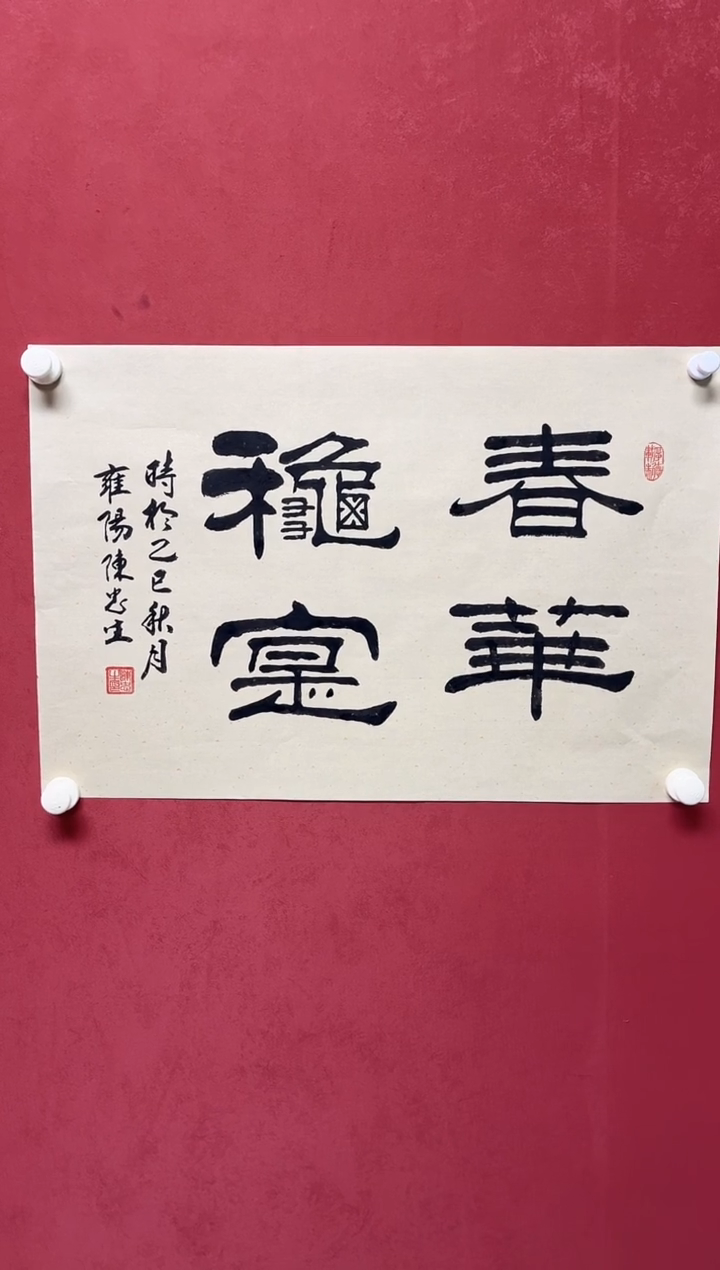 春華
龝寔
時於乙巳秋月
雍陽陳忠